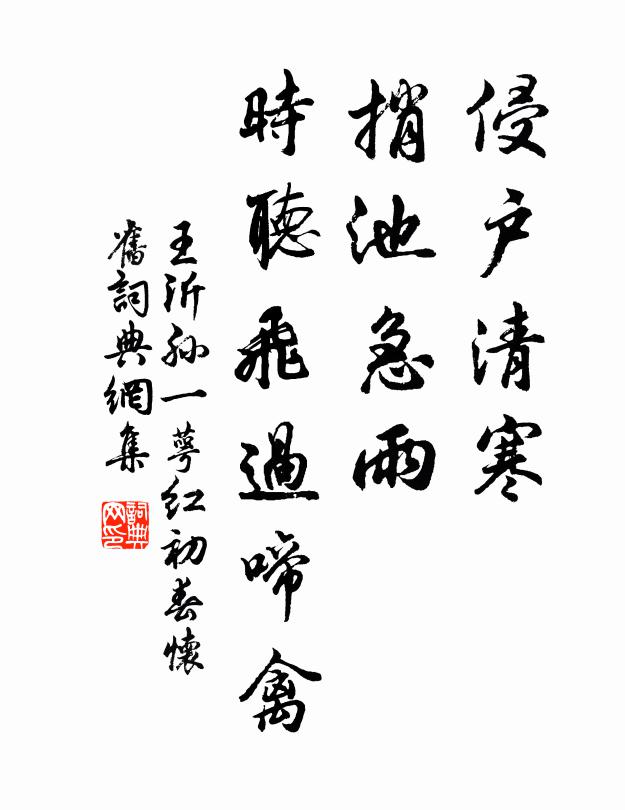 侵户清寒
捎池急雨
時聽飛過啼禽
王沂孫一萼紅初春懷
舊詞典網集
詞典网印